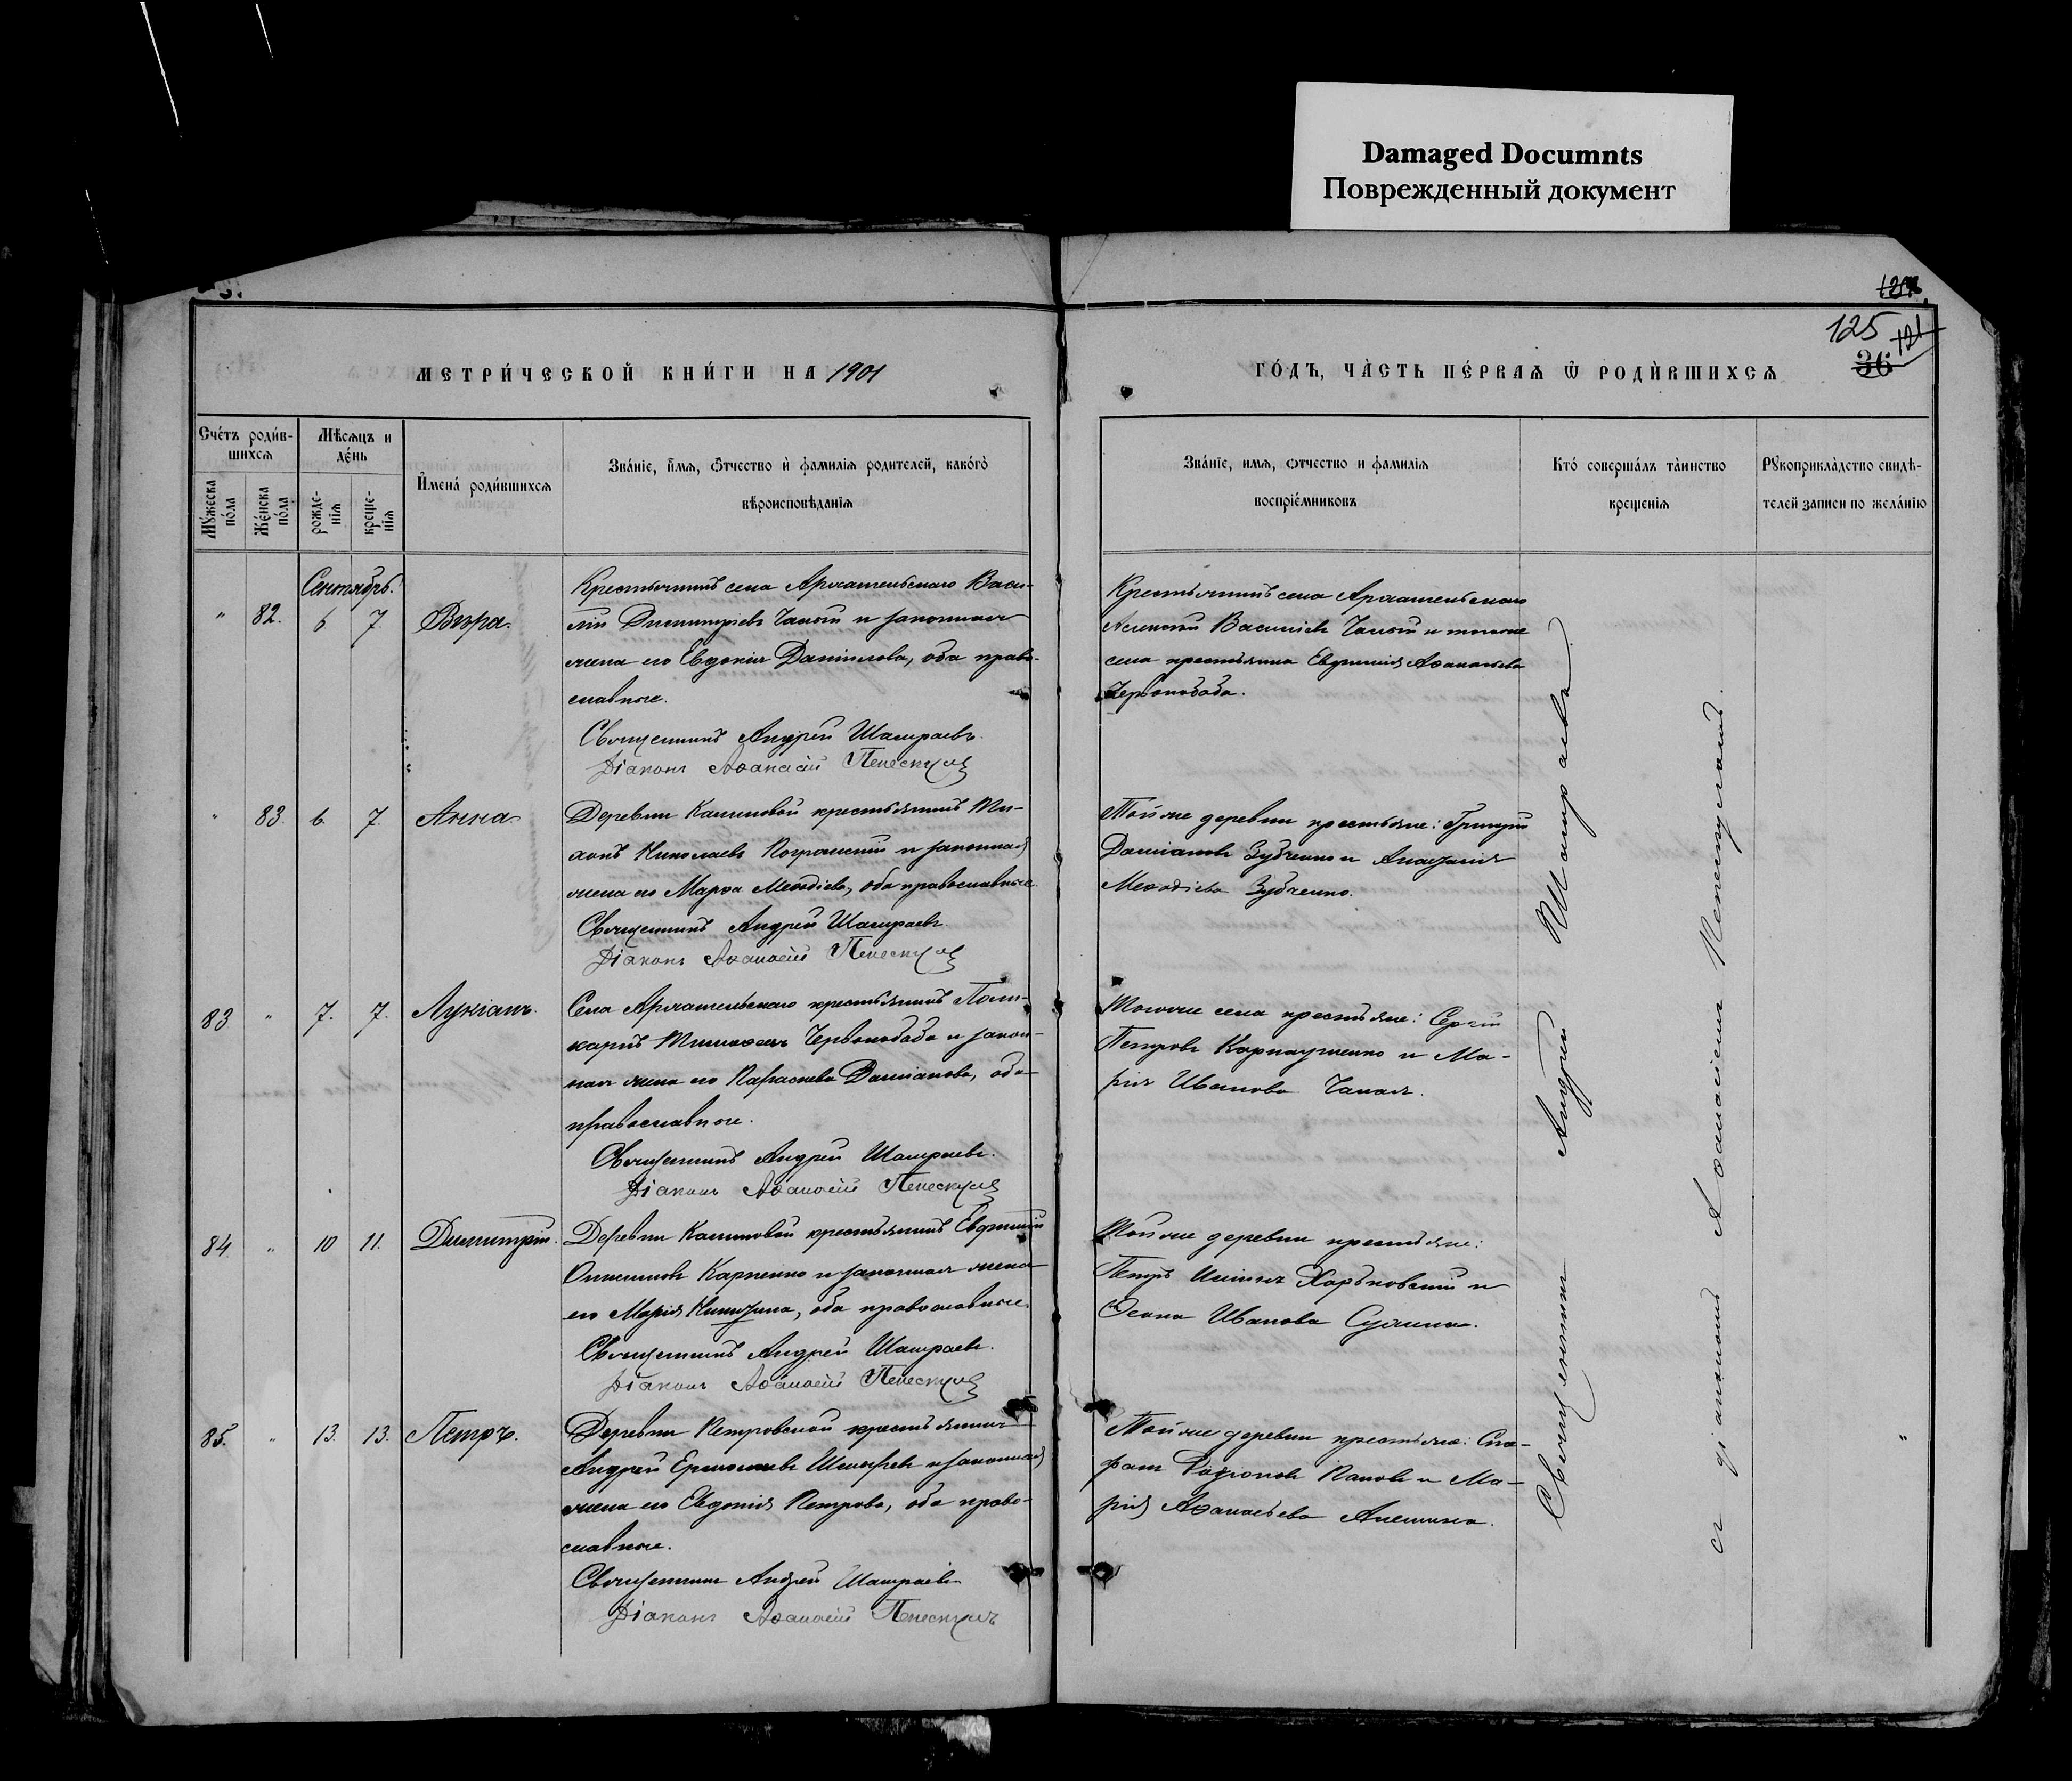 Damaged Documnts
Поврежденный документ
125
121
36
МЕТРИ́ЧЕСКОЙ КНИ́ГИ НА 1901
ГО́ДЪ, ЧА́СТЬ ПЕ́РВАѦ Ѿ РОДИ́ВШИХСѦ
Счетъ роди́в-
шихсѧ
Мѣсѧцъ и
де́нь
Мꙋжеска
по́ла
Же́нска
по́ла
рожде-
нїѧ
креще-
нїѧ
Имена́ роди́вшихсѧ
Зва́нїе, имѧ, ѻтчество и фамилїѧ родителей, како́гѡ
вѣроисповѣданїѧ
Зва́нїе, имѧ, ѻтчество и фамилїѧ
воспрїе́мниковъ
Кто́ соверша́лъ та́инство
крещенїѧ
Рꙋкоприкла́дство свидѣ-
телей записи по жела́нїю
Сентябрь.
" 82. 6 7. Вѣра.
Крестьянинъ села Архангельскаго Васи-
лій Димитріевъ Чалый и законная
жена его Евдокія Даніилова, оба право-
славные.
Священникъ Андрей Шамраевъ.
Діаконъ Аѳанасій Пенескулъ
Крестьянинъ села Архангельскаго
Василіевъ Чалый и того же
села крестьянка Евфимія Аѳанасьева
Червонобаба.
" 83. 6. 7. Анна.
Деревни Калиновой крестьянинъ Ти-
хонъ Николаевъ и законная
жена его Марѳа Меѳодіева, оба православные.
Священникъ Андрей Шамраевъ
Діаконъ Аѳанасій Пенескулъ
Той же деревни крестьяне: Григорій
Даміановъ Зубченко и Анастасія
Меѳодіева Зубченко.
83 " 7. 7. Лукіанъ.
Села Архангельскаго крестьянинъ Поли-
карпъ Тимоѳеевъ Червонобаба и закон-
ная жена его Параскева Даміанова, оба
православные.
Священникъ Андрей Шамраевъ.
Діаконъ Аѳанасій Пенескулъ
Того же села крестьяне: Сергій
Петровъ Карнаушенко и Ма-
рія Иванова Чалая.
84. " 10 11. Димитрій.
Деревни Калиновой крестьянинъ Евфимій
Онисимовъ Карпенко и законная жена
его Марія Никитина, оба православные.
Священникъ Андрей Шамраевъ.
Діаконъ Аѳанасій Пенескулъ
Той же деревни крестьяне:
Петръ Харьковскій и
Иванова
85. " 13. 13. Петръ.
Деревни Петровской крестьянинъ
Андрей и законная
жена его Евдокія Петрова, оба право-
славные.
Священникъ Андрей Шамраевъ
Діаконъ Аѳанасій Пенескулъ
Той же деревни крестьяне:
Родіоновъ Пановъ и Ма-
рія Аѳанасьева Алешина.
Священникъ Андрей Шамраевъ
съ діакономъ Аѳанасіемъ Пенескуломъ.
"